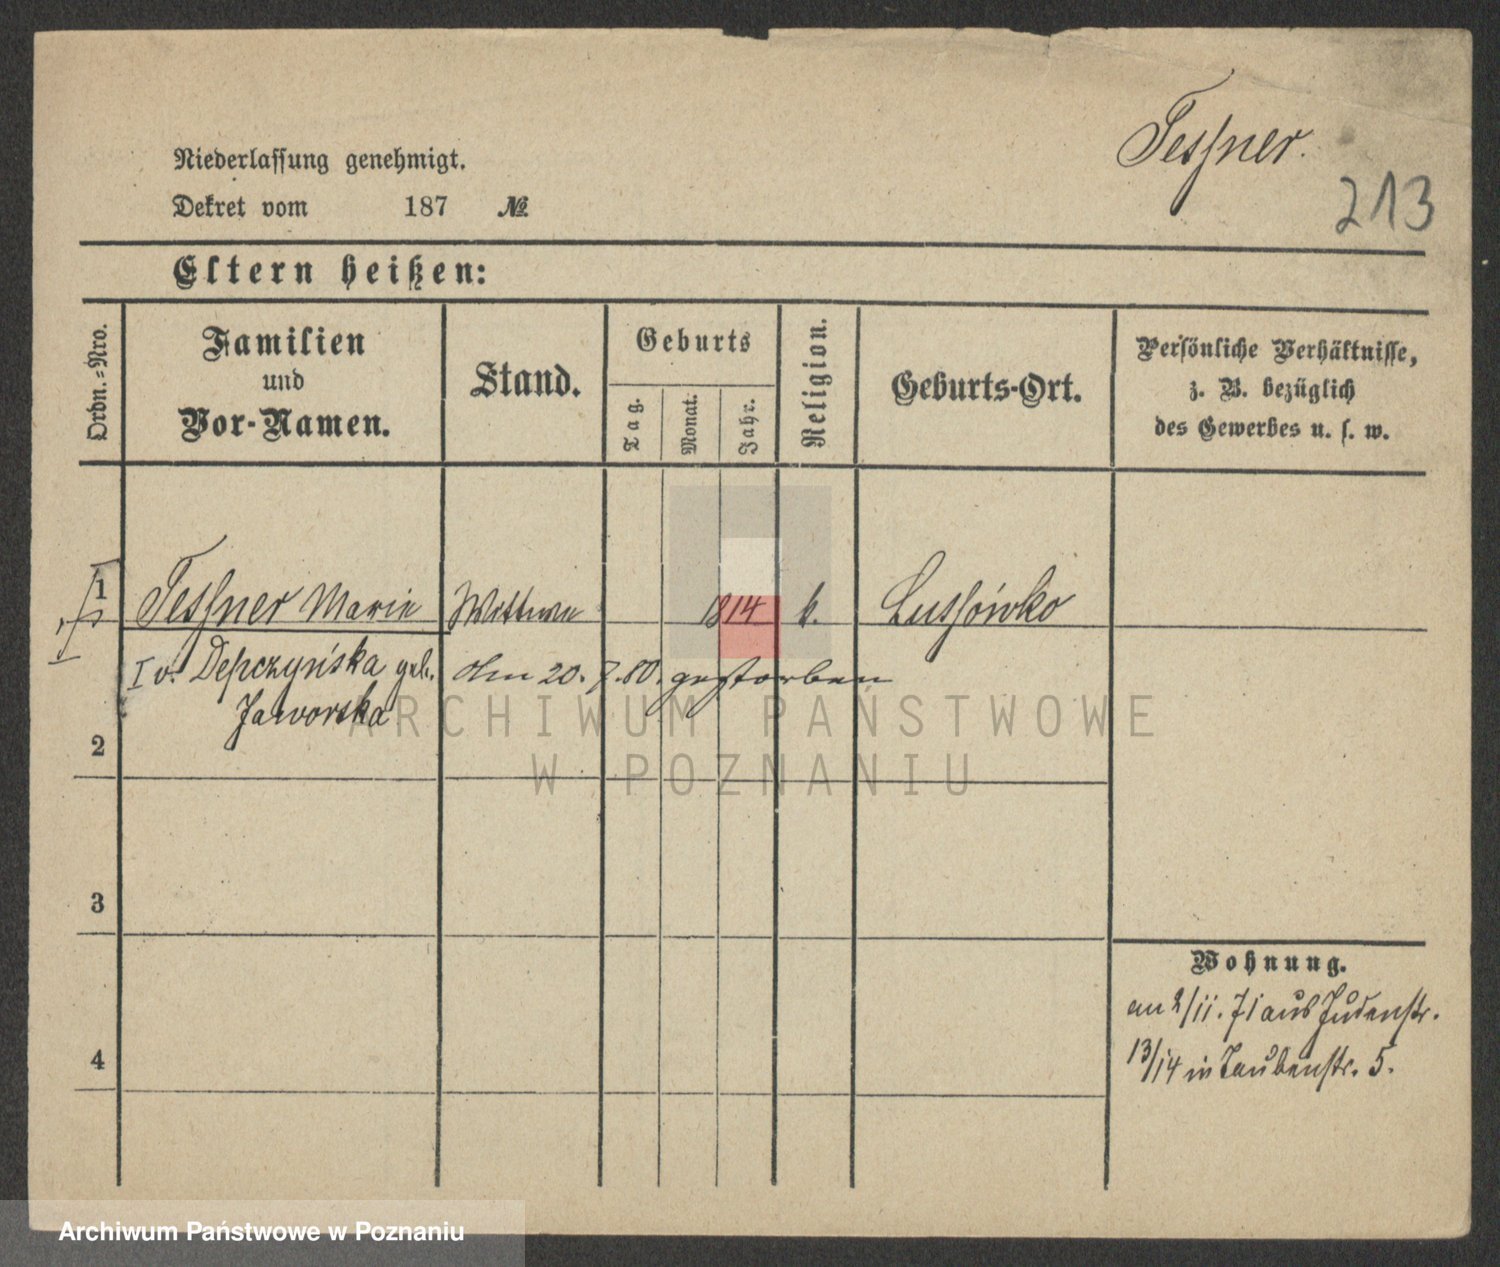 Tessner.
213
Niederlassung genehmigt.
Dekret vom 187 №
Eltern heißen:
Ordn.-Nro.
Familien
und
Vor-Namen.
Stand.
Geburts
Tag.
Monat.
Jahr.
Religion.
Geburts-Ort.
Persönliche Verhältnisse,
z. B. bezüglich
des Gewerbes u. s. w.
1 Tessner Marie Wittwe 1814 k. Lussówko
I v. Depczyńska geb. Am 20. 7. 80. gestorben
Jaworska
2
3
4
Wohnung.
am 2/11. 71 aus Judenstr.
13/14 in Taubenstr. 5.
ARCHIWUM PAŃSTWOWE
W POZNANIU
Archiwum Państwowe w Poznaniu